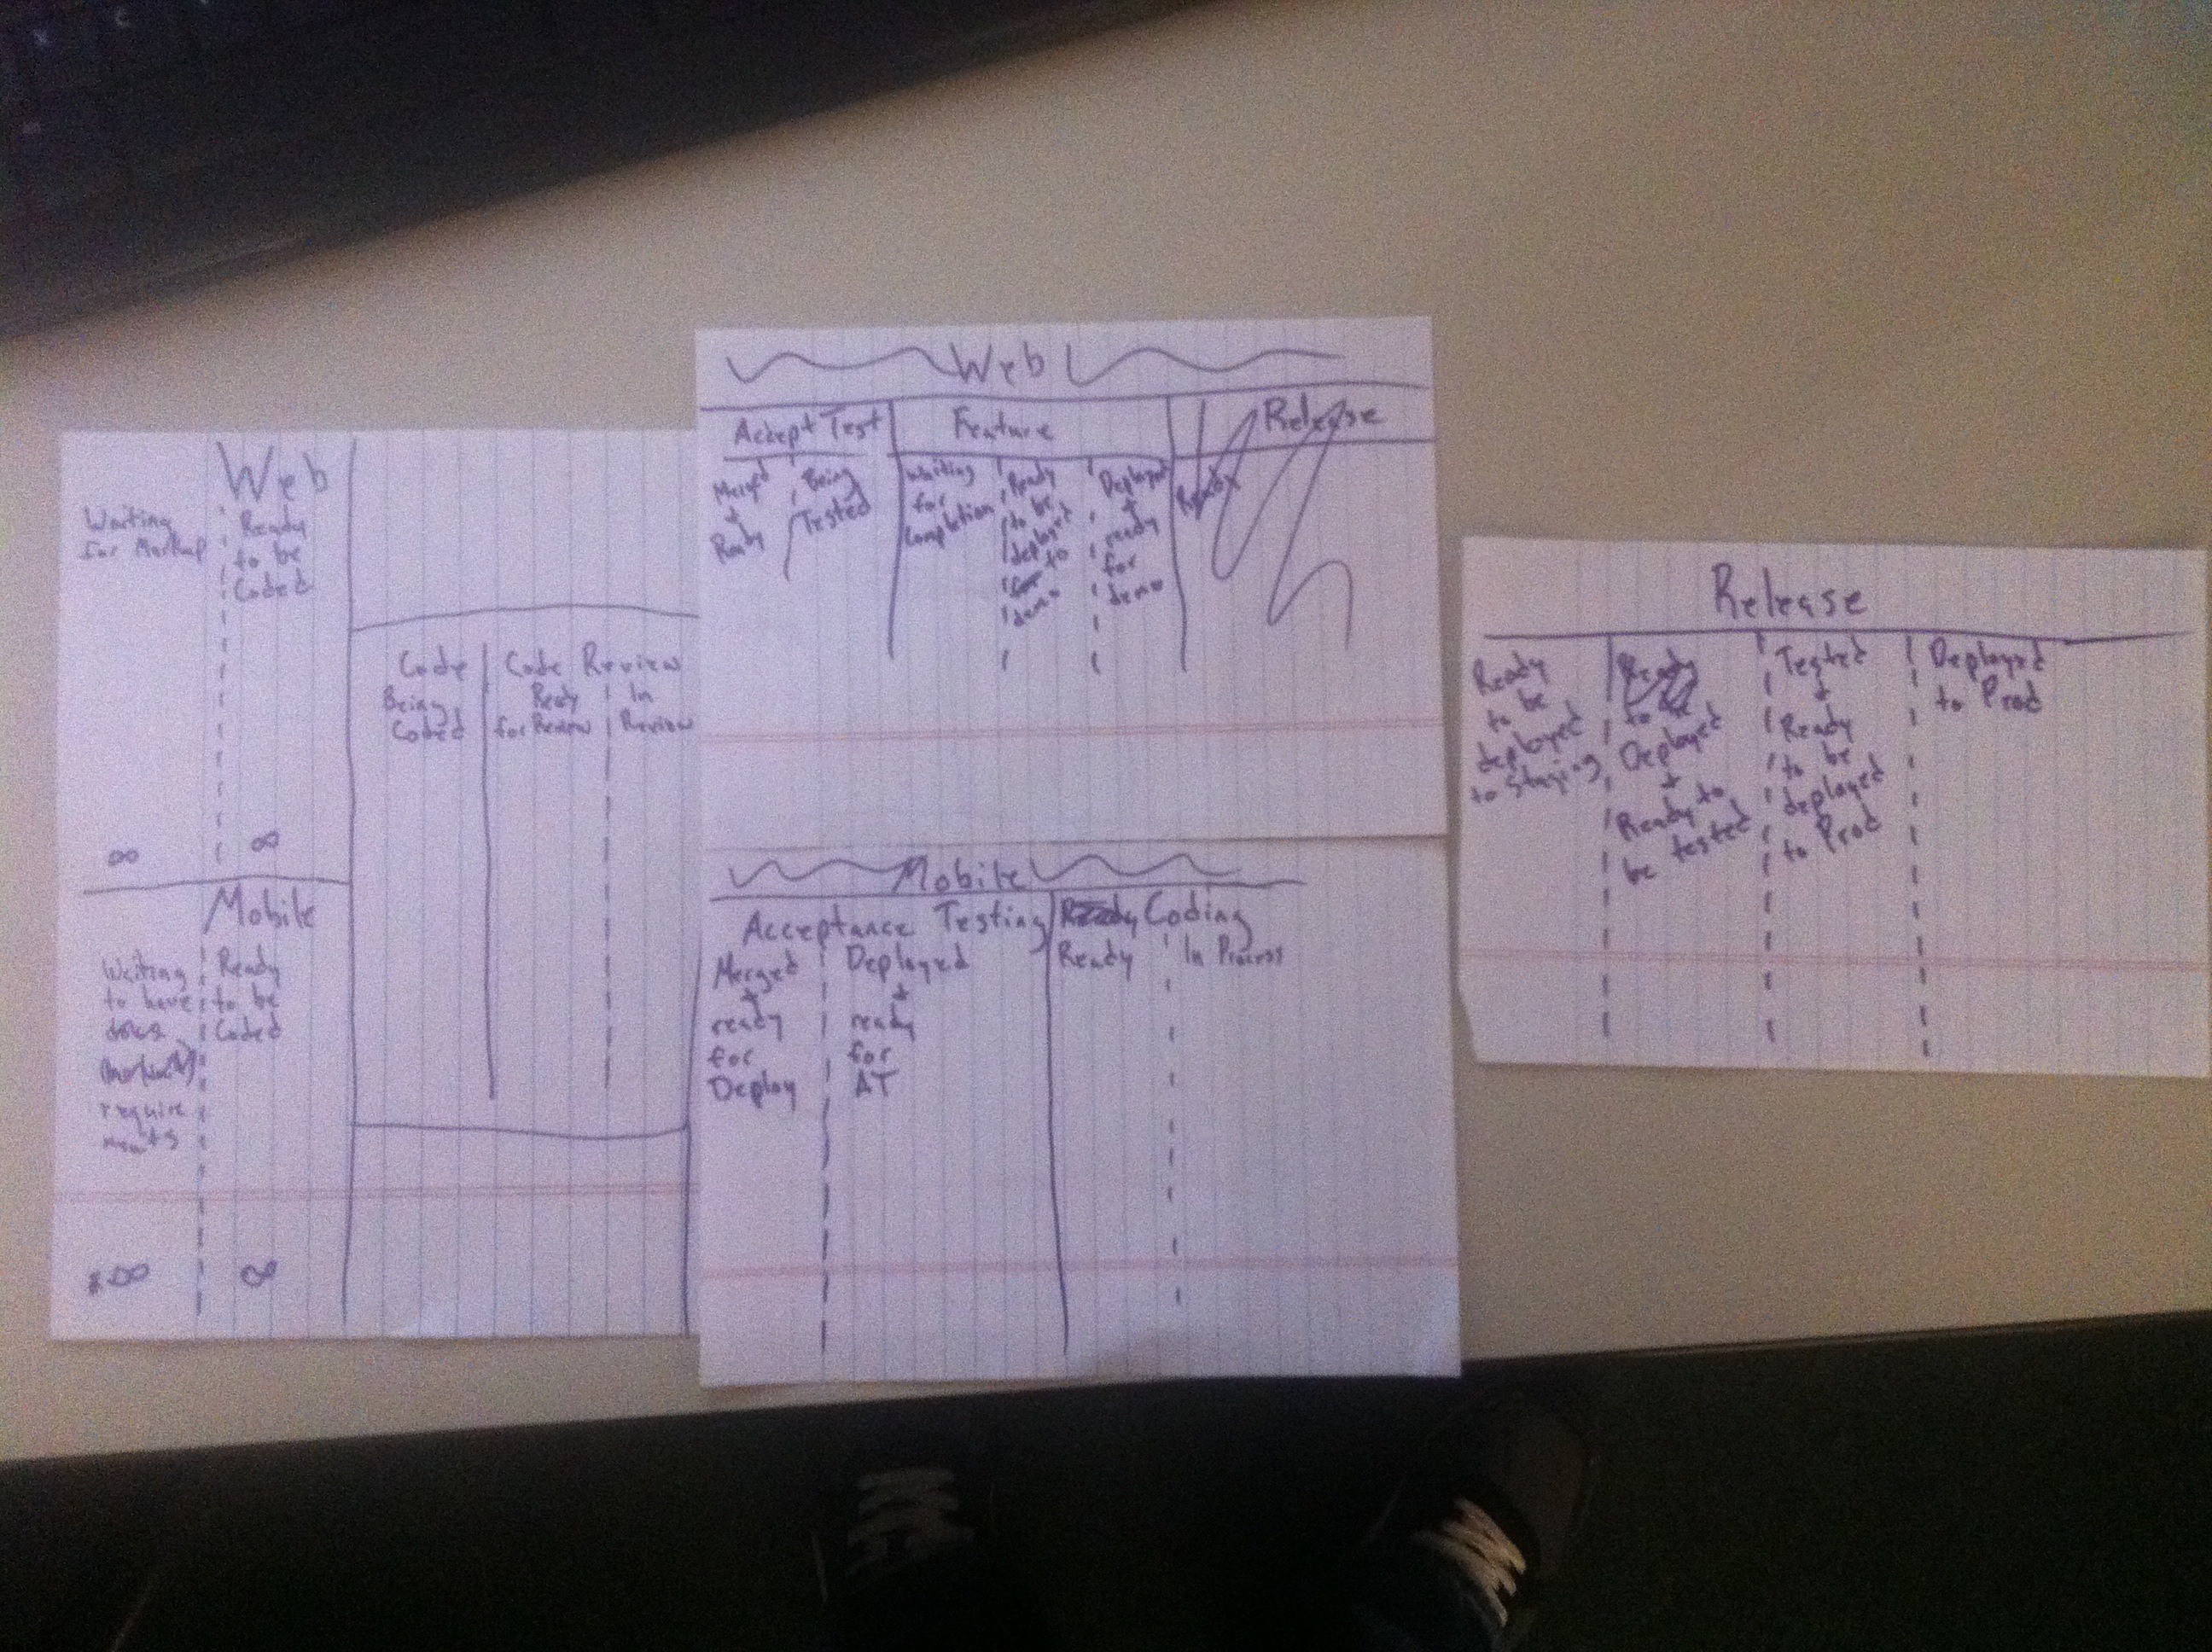 Web
Waiting
for Markup
Ready
to be
Coded
∞ ∞
Mobile
Waiting
to have
Ready
to be
Coded
require
ments
∞ ∞
Code
Being
Coded
Code Review
Ready
for Review
In
Review
Web
Accept Test
Merged
+
Ready
Being
Tested
Feature
Waiting
for
Completion
Ready
to be
deployed
to
demo
Deployed
+
ready
for
demo
Release
Ready
Mobile
Acceptance Testing
Merged
+
ready
for
Deploy
Deployed
+
ready
for
AT
Coding
Ready
In Process
Release
Ready
to be
deployed
to Staging
Ready
to be
Deployed
+
Ready to
be tested
Tested
+
Ready
to be
deployed
to Prod
Deployed
to Prod